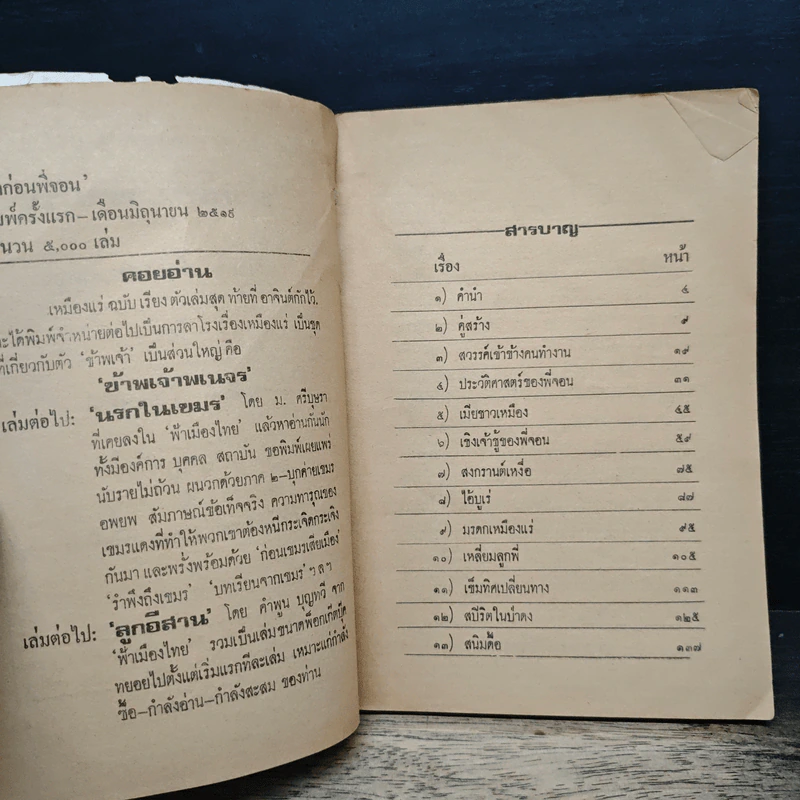 ก่อนพี่จอน'
พ์ครั้งแรก–เดือนมิถุนายน ๒๕๑๙
นวน ๕,๐๐๐ เล่ม
คอยอ่าน
เหมืองแร่ ฉบับ เรียง ตัวเล่มสุด ท้ายที่ อาจินต์กักไว้.
ะได้พิมพ์จำหน่ายต่อไปเป็นการลาโรงเรื่องเหมืองแร่ เป็นชุด
ที่เกี่ยวกับตัว 'ข้าพเจ้า' เป็นส่วนใหญ่ คือ
'ข้าพเจ้าพเนจร'
เล่มต่อไป: 'นรกในเขมร' โดย ม. ศรีบุษรา
ที่เคยลงใน 'ฟ้าเมืองไทย' แล้วหาอ่านกันนัก
ทั้งมีองค์การ บุคคล สถาบัน ขอพิมพ์เผยแพร่
นับรายไม่ถ้วน ผนวกด้วยภาค ๒–บุกค่ายเขมร
อพยพ สัมภาษณ์ข้อเท็จจริง ความทารุณของ
เขมรแดงที่ทำให้พวกเขาต้องหนีกระเจิดกระเจิง
กันมา และพรั่งพร้อมด้วย 'ก่อนเขมรเสียเมือง'
'รำพึงถึงเขมร' 'บทเรียนจากเขมร' ฯลฯ
เล่มต่อไป: 'ลูกอีสาน' โดย คำพูน บุญทวี จาก
'ฟ้าเมืองไทย' รวมเป็นเล่มขนาดพ็อกเก็ตบุ๊ค
ทยอยไปตั้งแต่เริ่มแรกทีละเล่ม เหมาะแก่กำลัง
ซื้อ–กำลังอ่าน–กำลังสะสม ของท่าน
สารบาญ
เรื่อง หน้า
๑) คำนำ ๔
๒) คู่สร้าง ๙
๓) สวรรค์เข้าข้างคนทำงาน ๑๙
๔) ประวัติศาสตร์ของพี่จอน ๓๑
๕) เมียชาวเหมือง ๔๕
๖) เชิงเจ้าชู้ของพี่จอน ๕๙
๗) สงกรานต์เหงื่อ ๗๕
๘) ไอ้บูเร่ ๘๗
๙) มรดกเหมืองแร่ ๙๕
๑๐) เหลี่ยมลูกพี่ ๑๐๕
๑๑) เข็มทิศเปลี่ยนทาง ๑๑๓
๑๒) สปิริตในป่าดง ๑๒๕
๑๓) สนิมคือ ๑๓๗